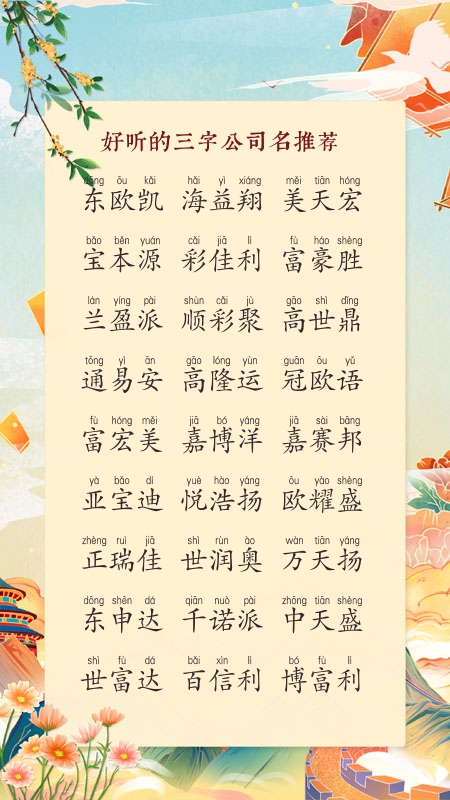 好听的三字公司名推荐
dōng ōu kǎi hǎi yì xiáng měi tiān hóng
东欧凯 海益翔 美天宏
bǎo běn yuán cǎi jiā lì fù háo shèng
宝本源 彩佳利 富豪胜
lán yíng pài shùn cǎi jù gāo shì dǐng
兰盈派 顺彩聚 高世鼎
tōng yì ān gāo lóng yùn guān ōu yǔ
通易安 高隆运 冠欧语
fù hóng měi jiā bó yáng jiā sài bāng
富宏美 嘉博洋 嘉赛邦
yà bǎo dí yuè hào yáng ōu yào shèng
亚宝迪 悦浩扬 欧耀盛
zhèng ruì jiā shì rùn ào wàn tiān yáng
正瑞佳 世润奥 万天扬
dōng shēn dá qiān nuò pài zhōng tiān shèng
东申达 千诺派 中天盛
shì fù dá bǎi xìn lì bó fù lì
世富达 百信利 博富利